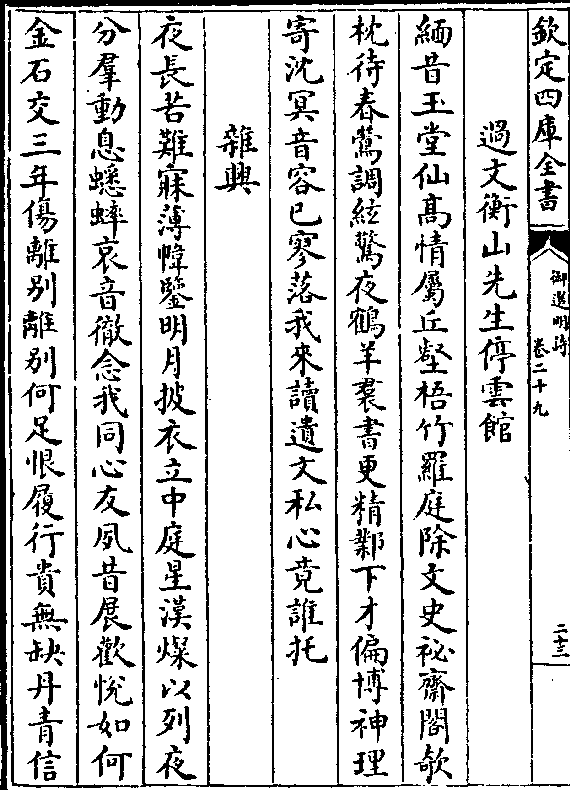 欽定四庫全書
御選明詩
卷二十九
二十三
過文衡山先生停雲館
緬昔玉堂仙高情屬丘壑梧竹羅庭除文史祕齋閣欹
枕待春鶯調絃驚夜鶴羊裠書更精鄴下才偏博神理
寄沈冥音容已寥落我來讀遺文私心竟誰托
雜興
夜長苦難寐薄幃鑒明月披衣立中庭星漢燦以列夜
分羣動息蟋蟀哀音徹念我同心友夙昔展歡悅如何
金石交三年傷離别離别何足恨履行貴無缺丹青信